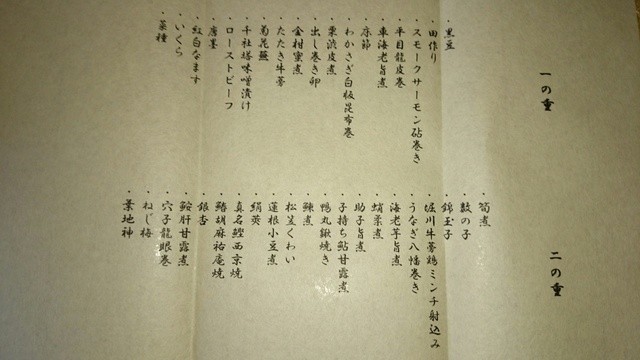 一の重
・黒豆
・田作り
・スモークサーモン砧巻き
・平目龍皮巻
・車海老旨煮
・唐筋
・わかさぎ白板昆布巻
・栗渋皮煮
・出し巻き卵
・金柑蜜煮
・たたき牛蒡
・菊花蕪
・千社塔味噌漬け
・ローストビーフ
・唐墨
・紅白なます
・いくら
・菜種
二の重
・筍煮
・数の子
・錦玉子
・堀川牛蒡鶏ミンチ射込み
・うなぎ八幡巻き
・海老芋旨煮
・蛸柔煮
・助子旨煮
・子持ち鮎甘露煮
・鴨丸鍬焼き
・鰊煮
・松笠くわい
・蓮根小豆煮
・絹莢
・真名鰹西京焼
・鰆胡麻祐庵焼
・銀杏
・鮟肝甘露煮
・穴子龍眼巻
・ねじ梅
・葉地神